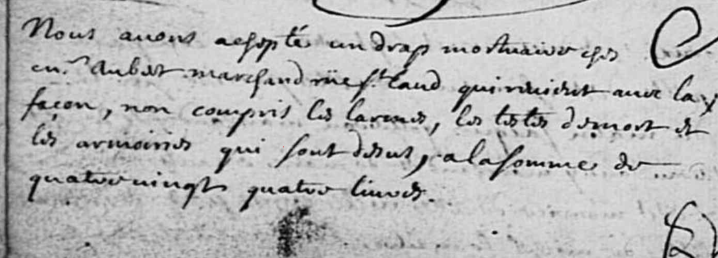 Nous avons achepté un drap mortuaire ches
m.r Aubert marchand rüe S.t Laud qui revient avec la
façon, non compris les larmes, les testes de mort et
les armoiries qui sont desus, a la somme de
quatrevingt quatre livres.